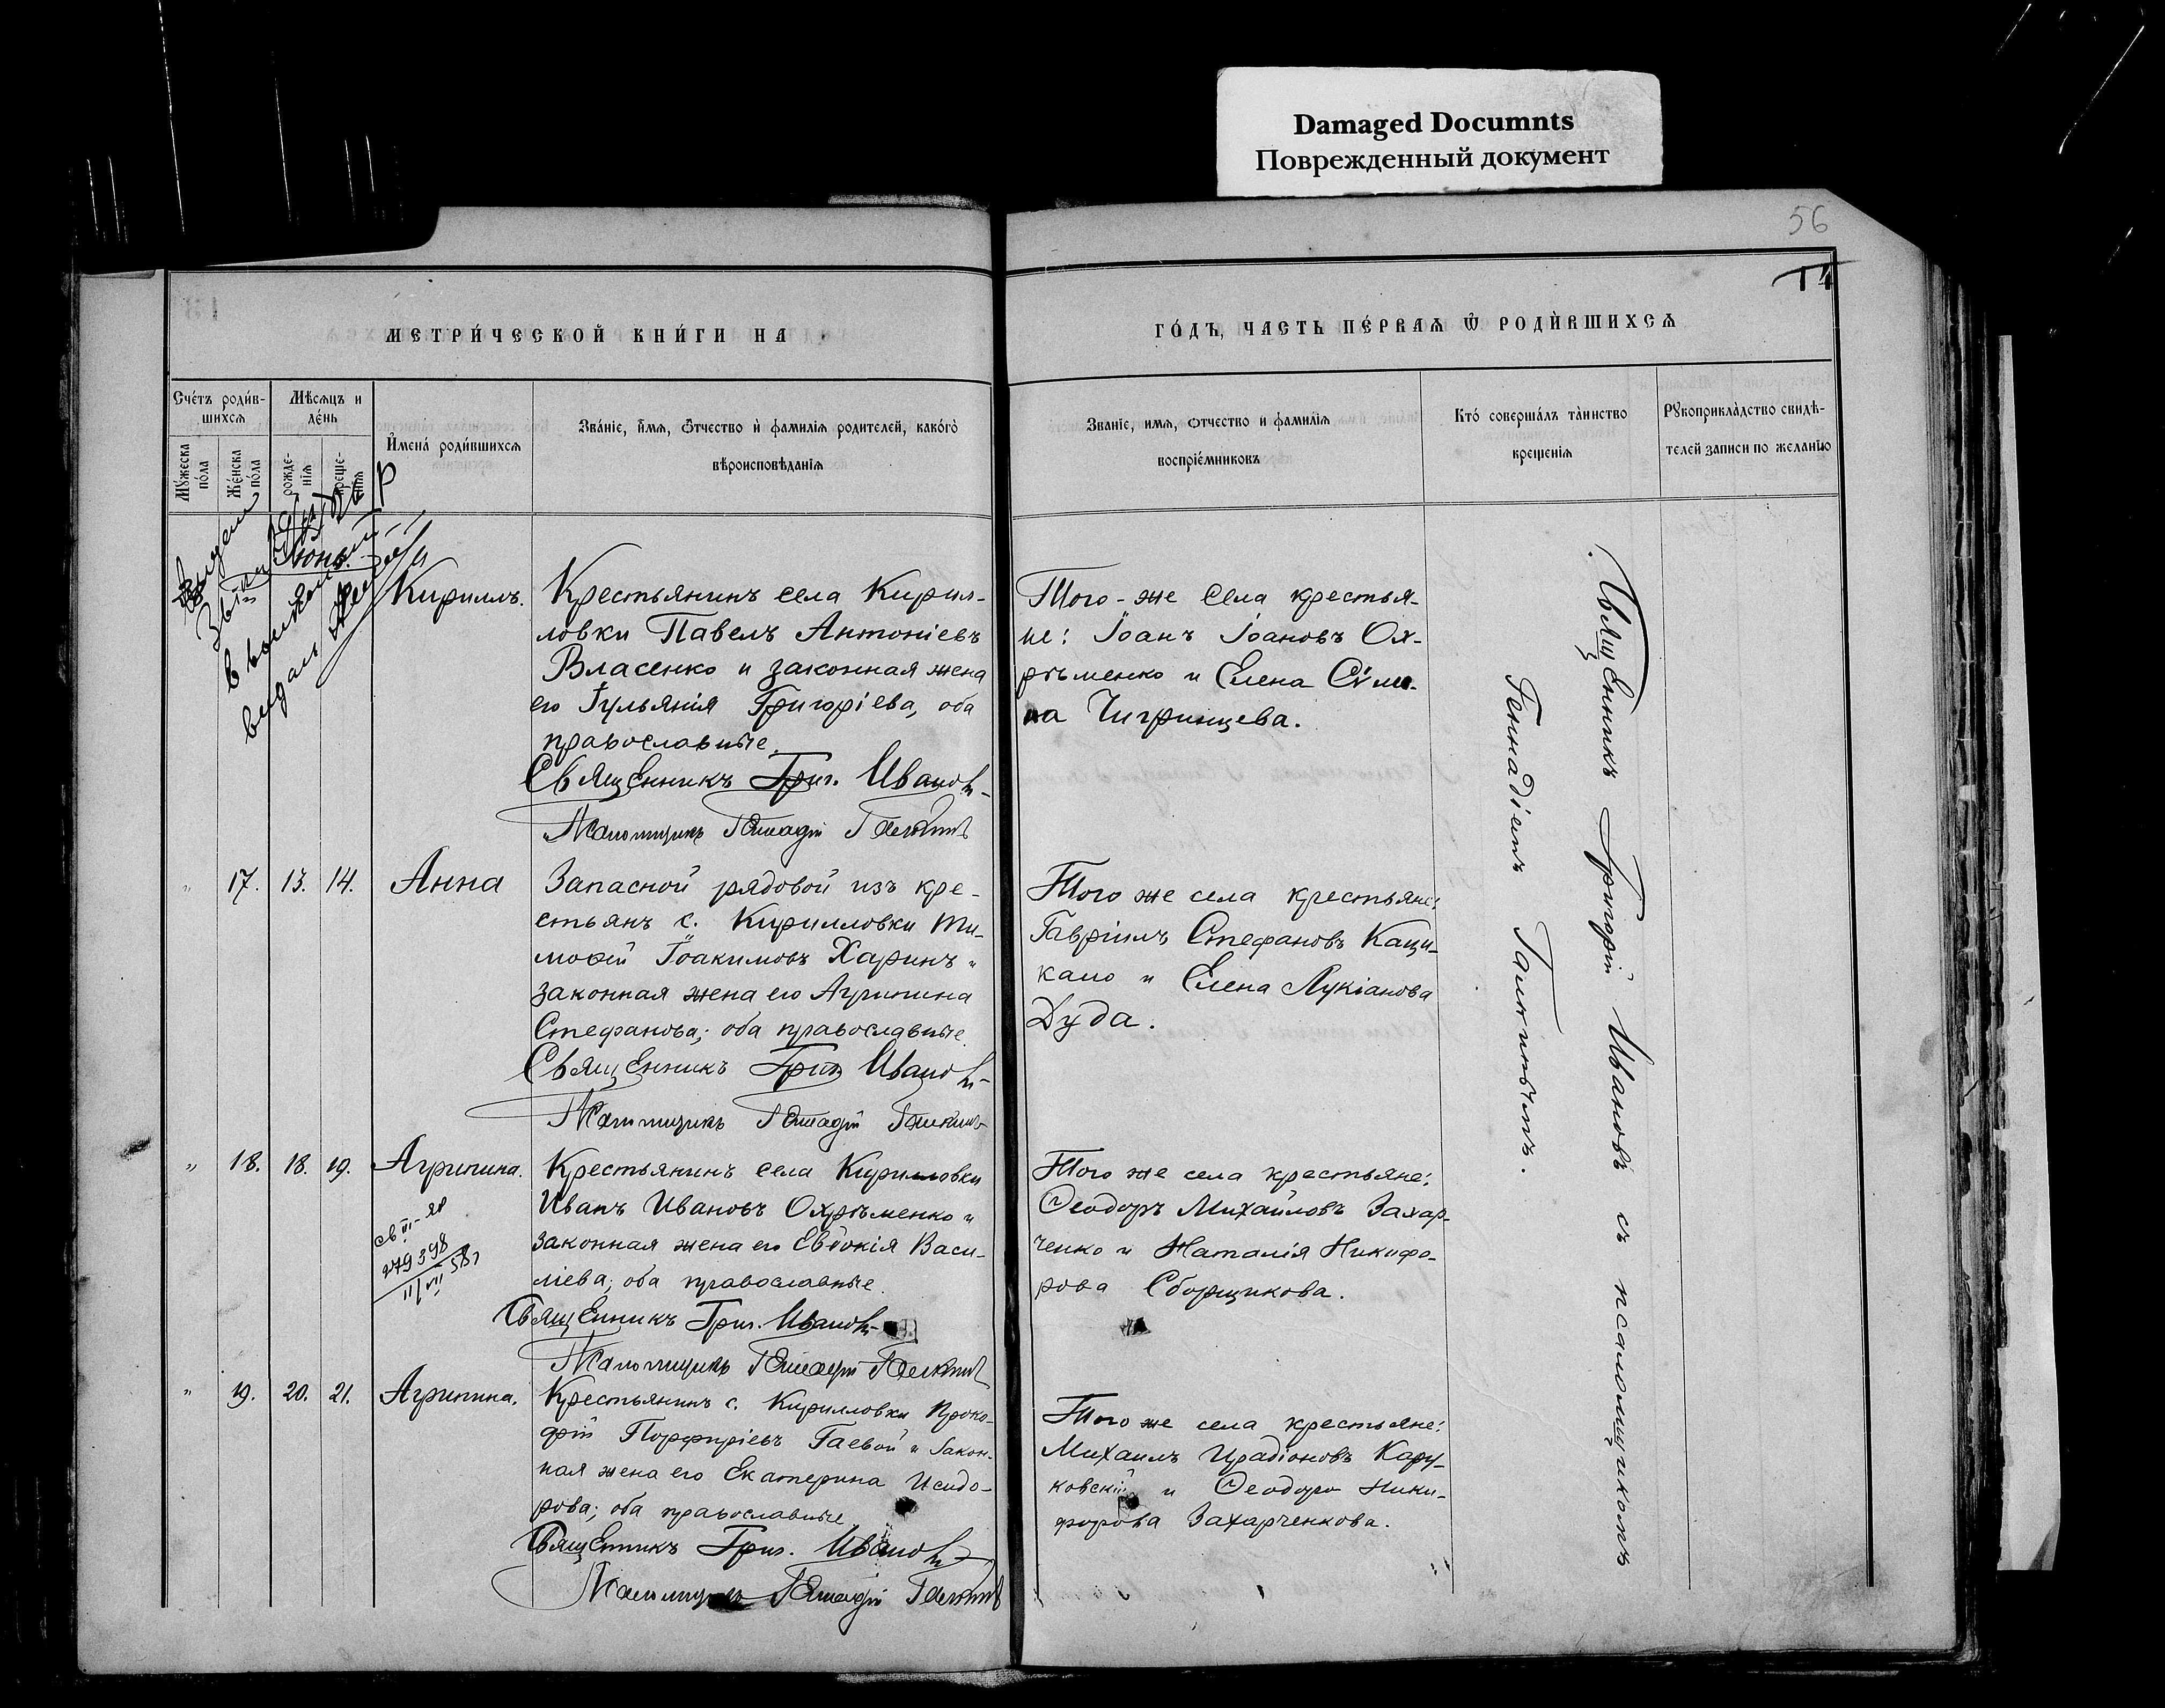 Damaged Documnts
Поврежденный документ
56
14
МЕТРИ́ЧЕСКОЙ КНИ́ГИ НА
ГО́ДЪ, ЧАСТЬ ПЕ́РВАѦ Ѡ҆ РОДИ́ВШИХСѦ
Счéтъ роди́в-
шихсѧ
Мѣсѧцъ и
де́нь
Му́жеска
по́ла
Же́нска
по́ла
рожде-
нїѧ
креще-
нїѧ
И҆мена̀ роди́вшихсѧ
Зва́нїе, и҆́мѧ, ѻ҆́тчество и҆ фамилїѧ родителей, какóгѡ
вѣроисповѣданїѧ
Званїе, имѧ, ѻтчество и фамилїѧ
воспрїе́мниковъ
Кто́ соверша́лъ та̀инство
крещенїѧ
Рꙋкоприкла̀дство свидѣ-
телей записи по желанїю
Іюнь.
Кириллъ.
Крестьянинъ села Кирил-
ловки Павелъ Антоніевъ
Власенко и законная жена
его Іульянія Григоріева, оба
православные.
Священникъ Григ. Ивановъ
Псаломщикъ Геннадій Галкинъ
Того-же села крестья-
не: Іоанъ Іоановъ Ох-
рѣменко и Елена
на Чигринцева.
" 17. 13. 14. Анна
Запасной рядовой изъ кре-
стьянъ с. Кирилловки Ти-
моѳей Іоакимовъ Харинъ и
законная жена его Агрипина
Стефанова; оба православные.
Священникъ Григ Ивановъ
Псаломщикъ Геннадій Галкинъ
Того же села крестьяне:
Гавріилъ Стефановъ Каци-
кано и Елена Лукіанова
Дуда.
" 18. 18. 19. Агрипина.
Крестьянинъ села Кирилловки
Иванъ Ивановъ Охрѣменко и
законная жена его Евдокія Васи-
ліева; оба православные.
Священникъ Григ. Ивановъ
Псаломщикъ Геннадій Галкинъ
Того же села крестьяне:
Ѳеодоръ Михайловъ Захар-
ченко и Наталія Никифо-
рова Сборщикова.
св VI-ЯР
279398
11/VII 58 г
" 19. 20. 21. Агрипина.
Крестьянинъ с. Кирилловки Проко-
фій Порфиріевъ Гаевой и закон-
ная жена его Екатерина Исидо-
рова; оба православные.
Священникъ Григ. Ивановъ
Псаломщикъ Геннадій Галкинъ
Того же села крестьяне:
Михаилъ Ирадіоновъ Кару-
ковскій и Ѳеодора Ники-
форова Захарченкова.
Священникъ Григорій Ивановъ съ псаломщикомъ
Геннадіемъ Галкинымъ.